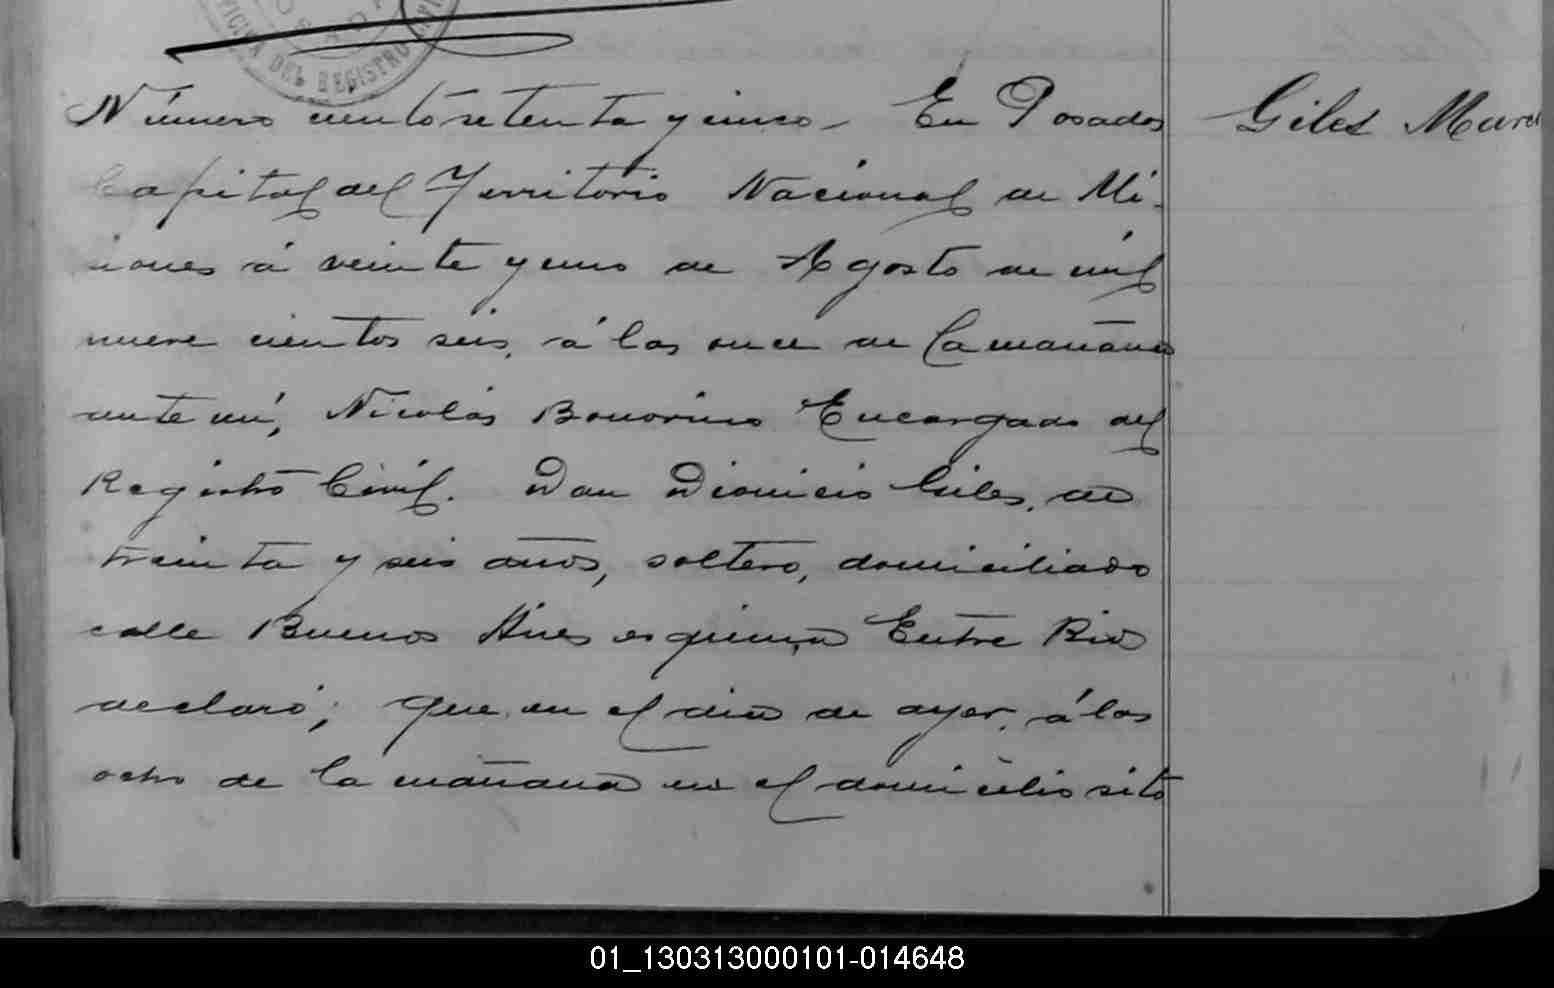 OFICINA DEL REGISTRO CIVIL
Número ciento setenta y cinco - En Posadas
Capital del Territorio Nacional de Mi-
siones á veinte y uno de Agosto de mil
nueve cientos seis, á las once de la mañana
ante mí, Nicolás Bonorino Encargado del
Registro Civil. Don Dionicio Giles, de
treinta y seis años, soltero, domiciliado
calle Buenos Aires esquina Entre Rios
declaró; que en el dia de ayer, á las
ocho de la mañana en el domicilio sito
Giles
01_130313000101-014648